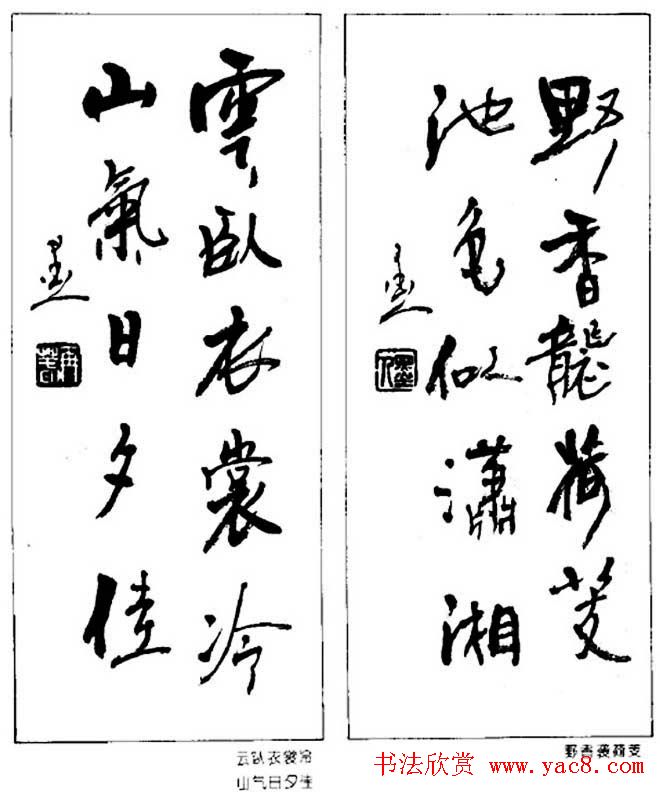 野香襲荷芰
池色似瀟湘
雲臥衣裳冷
山氣日夕佳
野香袭荷芰
云卧衣裳冷
山气日夕佳
书法欣赏 www.yac8.com